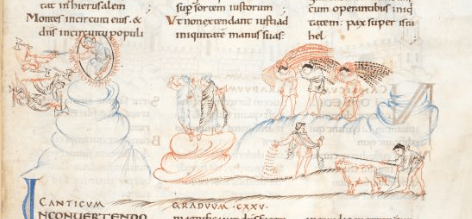 tat inhierusalem
Montes incircuitu eius. &
dns incircuitu populi
sup sortem iustorum
Ut non extendant iusti ad
iniquitatē manus suas:
cum operantibus iniq
tatem: pax super isra
hel
CANTICUM GRADUUM · CXXV ·
IN CONUERTENDO